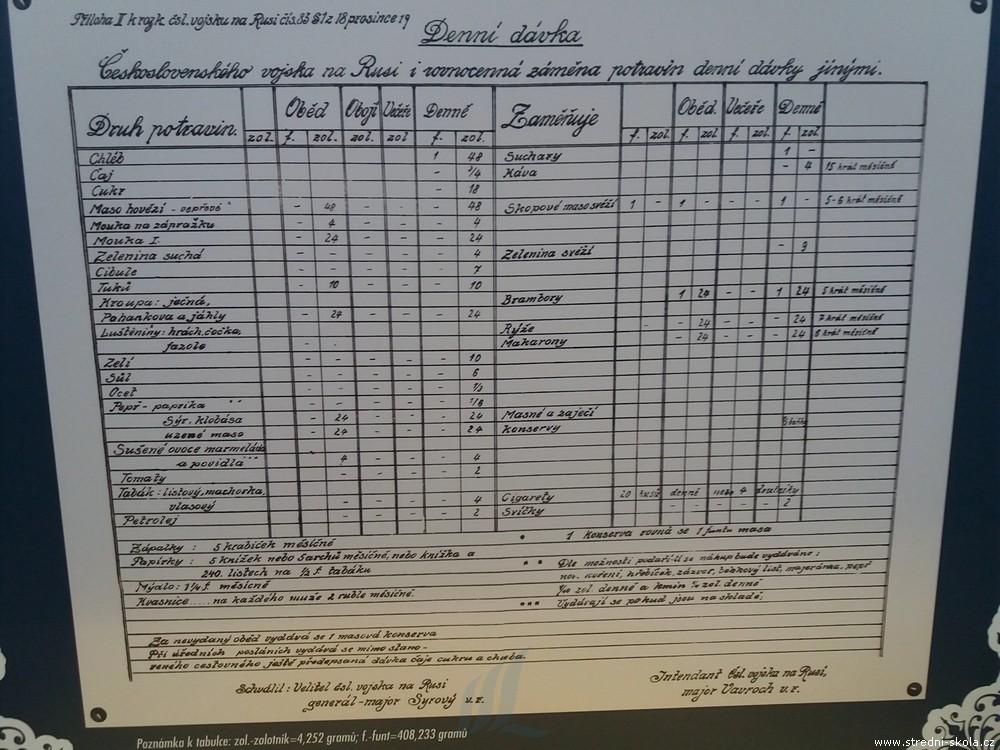 Příloha II k rozk. čsl. vojsku na Rusi čís. 83 §1 z 18 prosince 19
Denní dávka
Československého vojska na Rusi i rovnocenná záměna potravin denní dávky jinými.
Druh potravin. Oběd Obojí Večeře Denně Zaměňuje Oběd. Večeře Denně
zol. f. zol. zol. zol. f. zol. f. zol. f. zol f. zol. f. zol.
Chléb 1 48 Suchary 1 -
Čaj - 3/4 Káva - 4 15 krát měsíčně
Cukr - 18
Maso hovězí - vepřové - 48 - - - 48 Skopové maso svěží 1 - 1 - - - 1 - 5-6 krát měsíčně
Mouka na zápražku - 4 - - - 4
Mouka I. - 24 - - - 24
Zelenina suchá - - - - - 4 Zelenina svěží - 9
Cibule - - - - - 7
Tuků - 10 - - - 10
Kroupa: ječná, Brambory 1 24 - - 1 24 5 krát měsíčně
Pohankova a jáhly - 24 - - - 24
Luštěniny: hrách, čočka, Rýže - - - 24 - - - 24 7 krát měsíčně
fazole Makarony - 24 - - - 24 8 krát měsíčně
Zelí - - - - - 10
Sůl - - - - - 6
Ocet - - - - - 1/3
Pepř - paprika - - - - - 1/6
Sýr, klobása - 24 - - - 24 Masné a zaječí
uzené maso - 24 - - - 24 konservy
Sušené ovoce marmeláda
a povidla - 4 - - - 4
Tomaty - - - - - 2
Tabák: listový, machorka,
vlasový - - - - - 4 Cigarety 20 kusů denně nebo 4 doutníky
Petrolej - - - - - 2 Svíčky - - - - - - - 2
Zápalky: 5 krabiček měsíčně
Papírky: 5 knížek nebo 5 archů měsíčně, nebo knížka a
240. listech na 1/2 f. tabáku
Mýdlo: 1 1/4 f. měsíčně
Kvasnice..... na každého muže 2 ruble měsíčně.
* 1 Konserva rovná se 1 funtu masa
** Dle možnosti podaří-li se nákup bude vydáváno:
nov. koření, hřebíček, zázvor, bobkový list, majoránka, pepř
zol. denně a kmín zol. denně
*** Vydávají se pokud jsou na skladě.
Za nevydaný oběd vydává se 1 masová konserva
Při úředních posláních vydává se mimo stano-
veného cestovného ještě předepsaná dávka čaje cukru a chleba.
Schválil: Velitel čsl. vojska na Rusi
generál-major Syrový v.r.
Intendant čsl. vojska na Rusi,
major Vavroch v.r.
Poznámka k tabulce: zol.-zolotnik=4,252 gramů; f.-funt=408,233 gramů
www.stredni-skola.cz